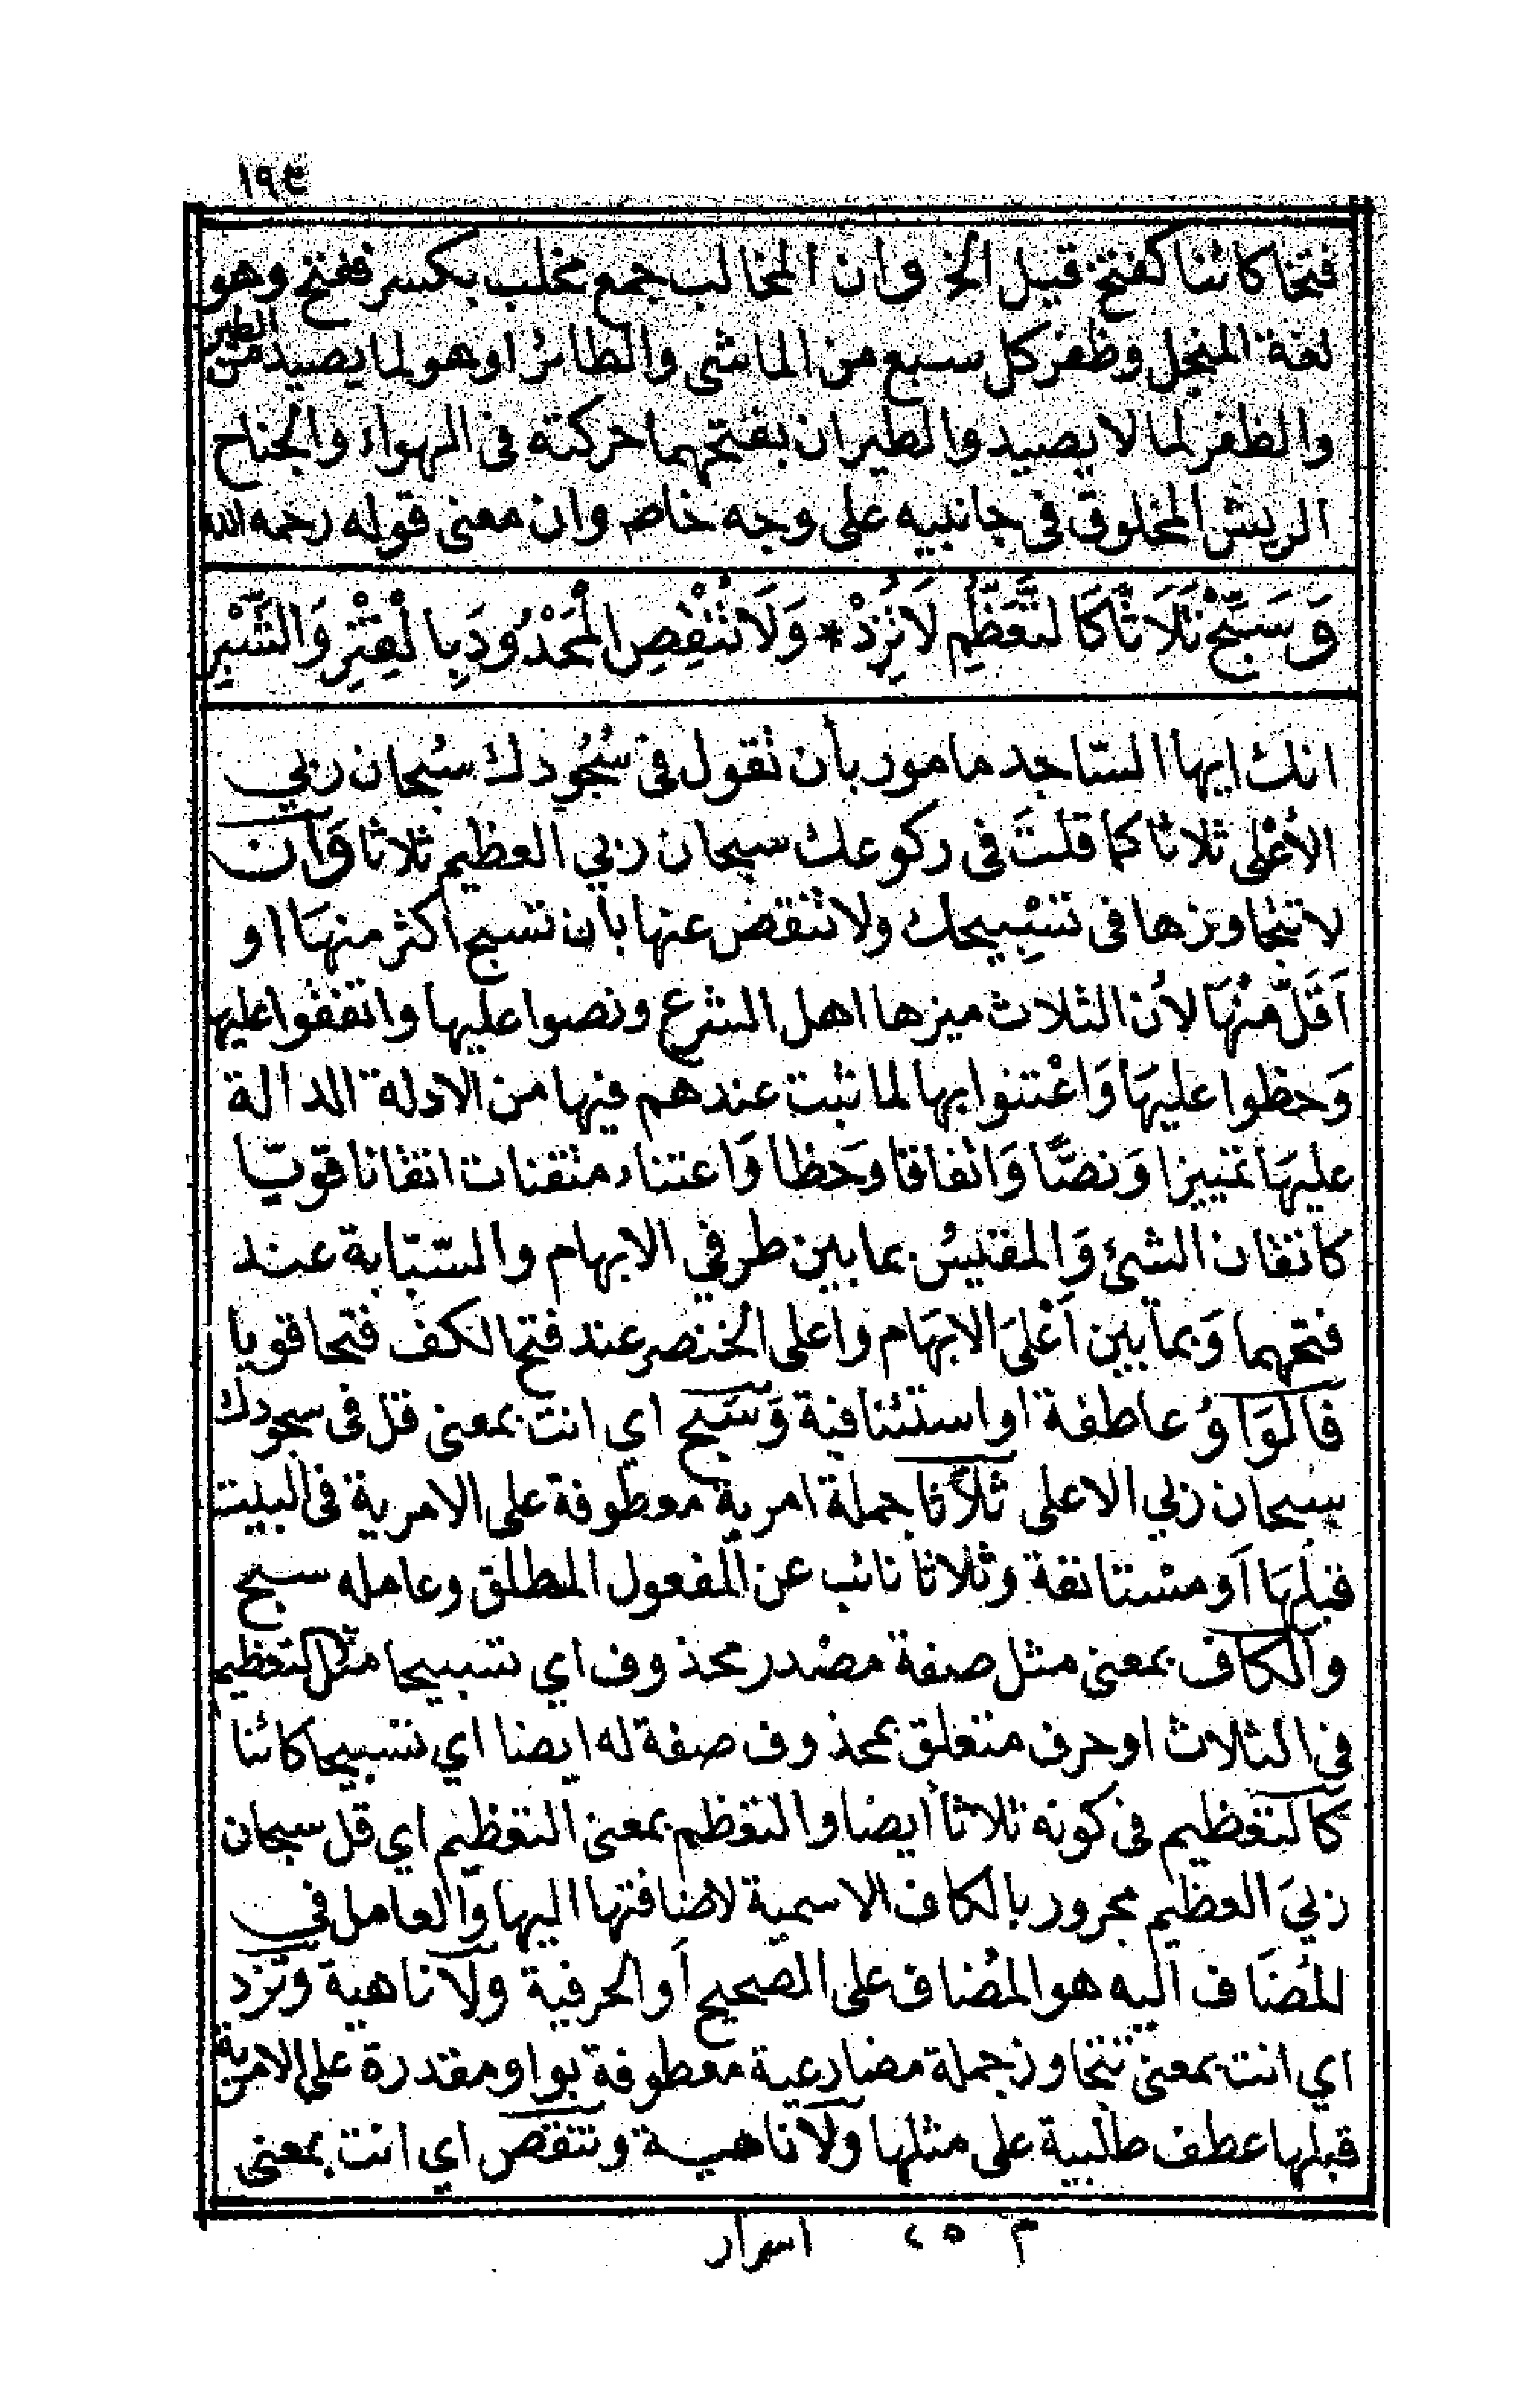 ١٩٣
فتخا كائنا كفتخ قبيل الخ وان المخالب جمع مخلب بكسر ففتح وهو
لغة المنجل وظفر كل سبع من الماشى والطائر او هو لما يصيد من الطير
والظفر لما لا يصيد والطيران بفتحهما حركته فى الهواء والجناح
الريش المخلوق فى جانبيه على وجه خاص وان معنى قوله رحمه الله
وَسَبِّحْ ثَلَاثًا كَالتَّعَظُّمِ لَا تَزِدْ * وَلَا تَنْقُصِ الْمَحْدُودَ بِالْفِتْرِ وَالشِّبْرِ
انك ايها السّاجد مامور بأن تقول فى سُجُودك سُبحان ربي
الأعْلى ثلاثا كما قلتَ فى ركوعك سبحان ربي العظيم ثلاثا وَأن
لا تتجاوزها فى تسْبِيحك ولا تنقص عنها بأن تسبح أكثر منهَا او
اَقَلّ منْهَا لأن الثلاث ميزها اهل الشرع ونصوا عليها واتفقوا عليها
وَحظوا عليهَا وَاعْتنوا بها لما ثبت عندهم فيها من الادلة الدالة
عليهَا تمييزا وَنصًّا وَاتفاقا وحَظا وَاعتناء متقنات اتقانا قويّا
كاتقان الشئ وَالمقيس بما بين طرفي الابهام والسّبّابة عند
فتحهما وَبما بين اَعْلىَ الابهَام واعلى الخنصر عند فتح الكف فتحا قويا
فَالوَاوُ عاطفة او استئنافية وَسَبح اي انت بمعنى قل فى سجودك
سبحان ربي الاعلى ثلاثا جملة امرية معطوفة على الامرية فى البيت
قبلهَا أو مستانفة وثلاثا نائب عن المفعول المطلق وعامله سبح
والكاف بمعنى مثل صفة مصْدر محذوف اي تسبيحا مثل التعظيم
في الثلاث او حرف متعلق بمحذوف صفة له ايضا اي تسبيحا كائنا
كالتعْظيم فى كونه ثلاثا أيضا والتعظم بمعنى التعْظيم اي قل سبحان
ربيَ العظيم مجرور بالكاف الاسمية لاضافتها اليها والعامل في
المُضَاف اليه هو المُضاف على الصّحيح أو الحرفية ولا ناهية وتزد
اي انت بمعنى تتجاوز جملة مضارعية معطوفة بواو مقدرة على الامرية
قبلها عطف طلبية على مثلها ولا ناهية وتنقص اي انت بمعنى
م ٢٥ اسرار